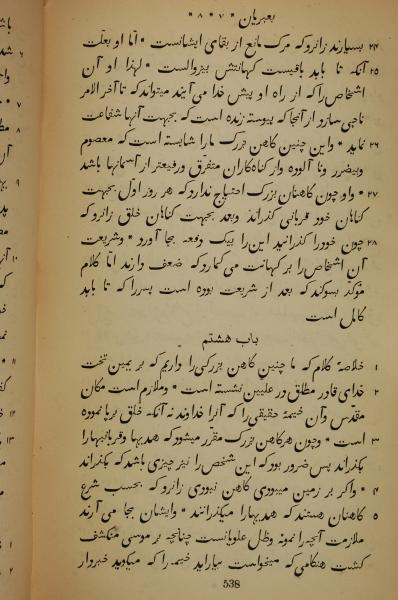 بعبریان * ۷ * ۸ *
۲۴ بسیارند زانرو که مرک مانع از بقای ایشانست * امّا او بعلّت
۲۵ آنکه تا باید باقیست کهانتش بیزوالست * لهذا او آن
اشخاص را که از راه او پیش خدا می‌آیند میتواند که تا آخر الامر
ناجی سازد از آنجا که پیوسته زنده است که بجهت آنها شفاعت
۲۶ نماید * و این چنین کاهن بزرک مارا شایسته است که معصوم
و بیضرر و نا آلوده و از کناه‌کاران متفرق و رفیعتر از آسمانها باشد
۲۷ * و او چون کاهنان بزرک احتیاج ندارد که هر روز اوّل بجهت
کناهان خود قربانی کذراند و بعد بجهت کناهان خلق زانرو که
۲۸ چون خود را کذرانید این را بیک دفعه بجا آورد * و شریعت
آن اشخاص را بر کهانت می‌کمارد که ضعف دارند امّا کلام
مؤکد بسوکند که بعد از شریعت بوده است پسر را که تا باید
کامل است
باب هشتم
۱ خلاصهٔ کلام که ما چنین کاهن بزرکی را داریم که بر یمین تخت
۲ خدای قادر مطلق در علّیین نشسته است * و ملازم است مکان
مقدّس و آن خیمهٔ حقیقی را که آنرا خداوند نه آنکه خلق بر پا نموده
۳ است * و چون هر کاهن بزرک مقرّر میشود که هدیها و قربانیها را
بکذراند پس ضرور بود که این شخص را نیز چیزی باشد که بکذراند
۴ * و اکر بر زمین میبودی کاهن نبودی زانرو که بحسب شرع
۵ کاهنان هستند که هدیها را میکذرانند * و ایشان بجا می‌آرند
ملازمت آنچه را نمونه و ظل علویانست چنانچه بر موسی منکشف
کشت هنکامی که میخواست بیاراید خیمه را که میکوید خبردار
538